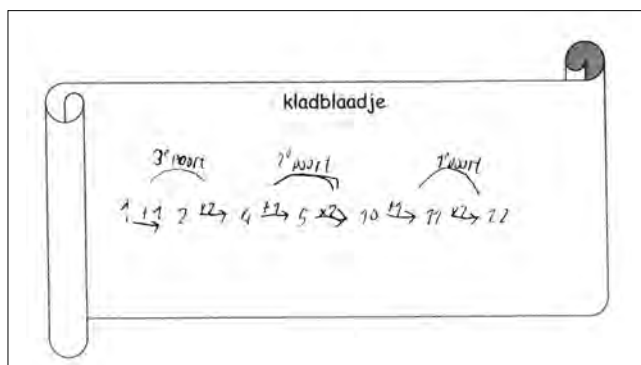 kladblaadje
3e poort 2e poort 1e poort
1 +1 2 x2 4 +1 5 x2 10 +1 11 x2 22